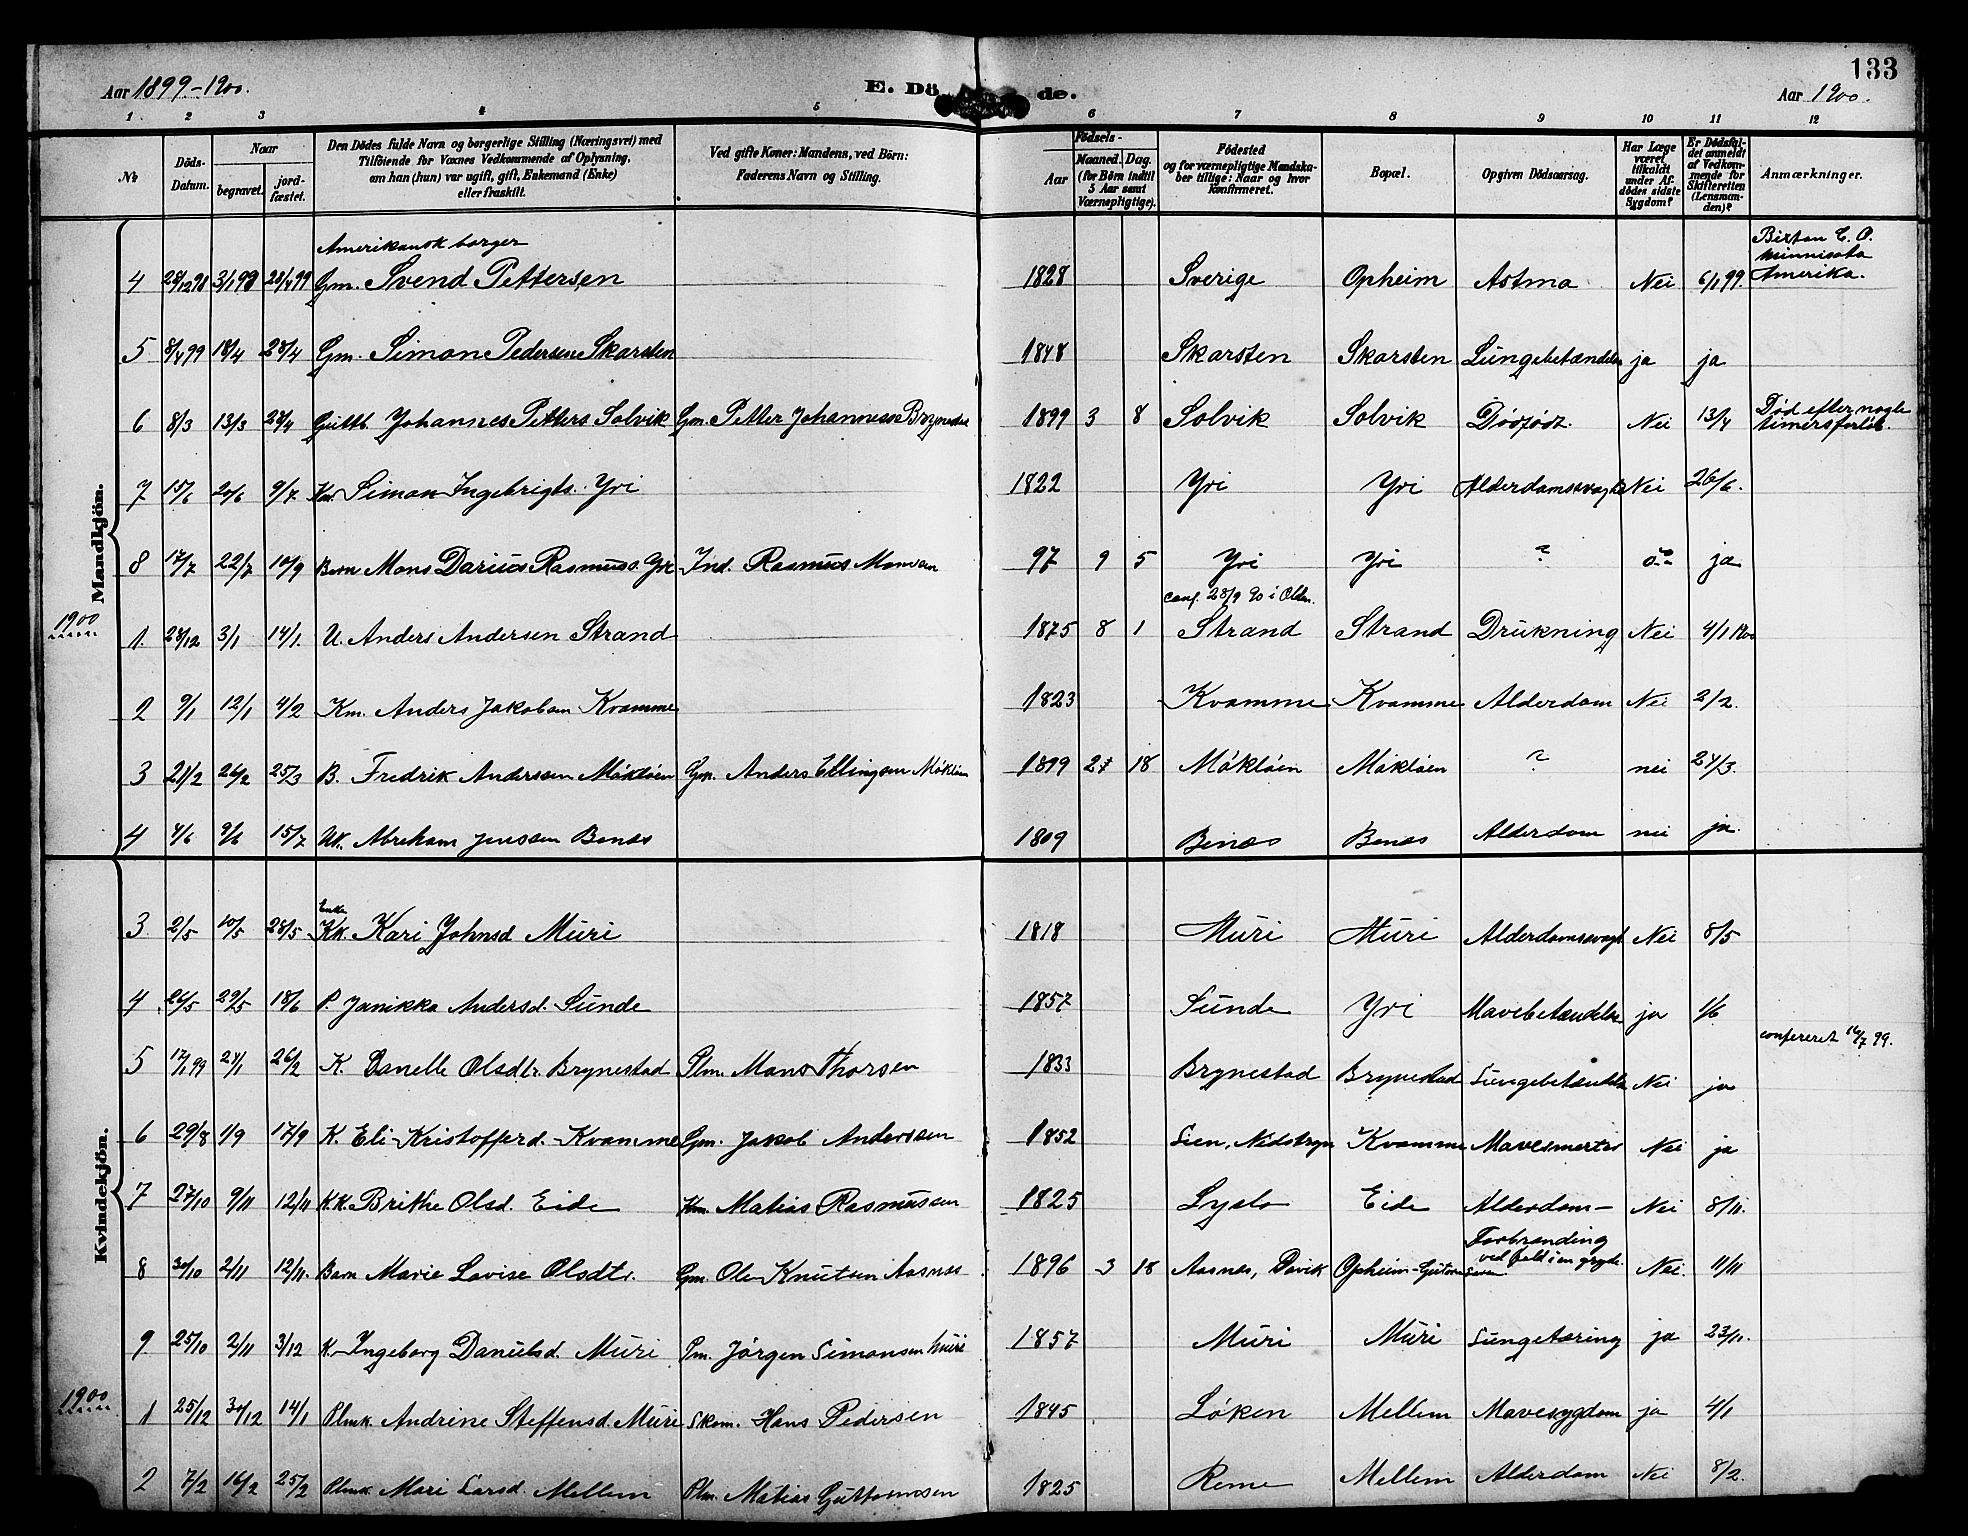 133
Aar 1899-1900.
E. Döde.
Aar 1900.
1 2 3 4 5 6 7 8 9 10 11 12
№
Döds-Datum.
Naar
begravet.
jordfæstet.
Den Dödes fulde Navn og borgerlige Stilling (Næringsvei) med
Tilföiende for Voxnes Vedkommende af Oplysning,
om han (hun) var ugift, gift, Enkemand (Enke)
eller fraskilt.
Ved gifte Koner: Mandens, ved Börn:
Faderens Navn og Stilling.
Födsels-
Aar
Maaned. Dag.
(for Börn indtil
5 Aar samt
Værnepligtige).
Födested
og for værnepligtige Mandska-
ber tillige: Naar og hvor
konfirmeret.
Bopæl.
Opgiven Dödsaarsag.
Har Læge
været
tilkaldt
under Af-
dödes sidste
Sygdom?
Er Dödsfal-
det anmeldt
af Vedkom-
mende for
Skifteretten
(Lensman-
den)?
Anmærkninger.
Mandkjön.
Amerikansk borger
4 28/12 98 3/1 99 28/4 99 Gm. Svend Pettersen 1828 Sverige Opheim Astma Nei 6/1 99. Bixton C. O. Minnisota Amerika.
5 8/4 99 18/4 28/4 Gm. Simon Pedersen Skarsten 1848 Skarsten Skarsten Lungebetændelse ja ja
6 8/3 13/3 28/4 Guttb. Johannes Petters Solvik Gm. Petter Johannessen 1899 3 8 Solvik Solvik Dødfødt. Nei 13/4 Død efter nogle timers forløb.
7 15/6 20/6 9/7 Km. Simon Ingebrigts. Yri 1822 Yri Yri Alderdomssvaghed Nei 26/6.
8 17/7 22/7 10/9 Barn Mons Darius Rasmuss. Yri Ind. Rasmus Monsen 97 9 5 Yri Yri ? ja
1900
conf. 28/9 90 i Olden.
1. 28/12 3/1 14/1. U. Anders Andersen Strand 1875 8 1 Strand Strand Drukning Nei 4/1 1900
2 9/1 12/1 4/2 Km. Anders Jakobsen Kvamme 1823 Kvamme Kvamme Alderdom Nei 2/2.
3 21/2 26/2 25/3 B. Fredrik Anderssen Mókløen Gm. Anders Ellingsen Mókløen 1899 2 18 Mókløen Mókløen ? nei 24/3.
4 4/6 9/6 15/7 Uk. Abraham Jenssen Benæs 1809 Benæs Benæs Alderdom nei ja.
Kvindekjön.
Enke
3 2/5 10/5 28/5 Kk. Kari Johnsd Muri 1818 Muri Muri Alderdomssvagh. Nei 8/5
4 26/5 29/5 18/6 P. Janikka Andersd. Sunde 1857 Sunde Yri Mavebetændelse ja 1/6
5 17/1 99 24/1 26/2 K. Danelle Olsdtr. Brynestad Plm. Mons Thorsen 1833 Brynestad Brynestad Lungebetændelse Nei ja confereret 16/7 99.
6 29/8 1/9 17/9 K. Eli Kristofferd. Kvamme Gm. Jakob Anderssen 1852 Sien, Nedstryn Kvamme Mavesmerter Nei ja
7 27/10 9/11 12/11 Kk. Brithe Olsd. Eide Km. Matias Rasmussen 1825 Lyslo Eide Alderdom Nei 8/11.
8 30/10 2/11 12/11. Barn Marie Lovise Olsdtr. Gm. Ole Knutsen Aasnes 1896 3 18 Aasnes, Davik Opheim Forbrænding ved fald i en gryde. Nei. 11/11
9 25/10 2/11 3/12 K. Ingeborg Danielsd. Muri Pm. Jørgen Simonsen Muri 1857 Muri Muri Lungetæring ja 23/11.
1900
1 25/12 30/12 14/1 Plmk. Andrine Steffensd. Muri Skom. Hans Pedersen 1845 Løken Mellem Mavesygdom ja 4/1
2 7/2 16/2 25/2 Plmk. Mari Larsd. Mellem Plm. Matias Guttormsen 1825 Reme Mellem Alderdom Nei 8/2.